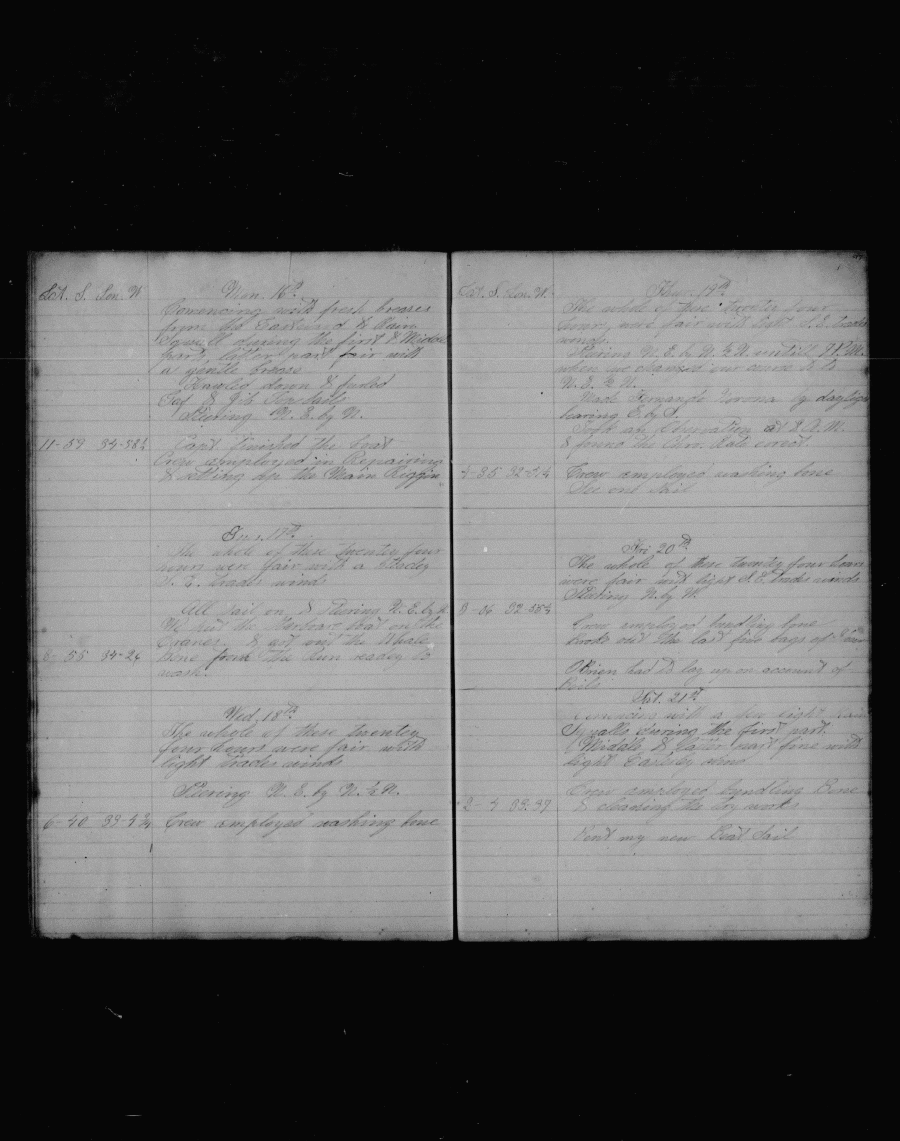 Lat. S. Lon. W.
Mon. 16th
Comencing with fresh breases
from the Eastward & Rain
Squalls during the first & Midle
part, latter part fair with
a gentle brease
Hawled down & furled
Gaf & Jib Topsails
Steering N. E. by N.
11-59 34-58½
Capt finished the boat
Crew employed in Repairing
& setting up the Main Riggin
Tues. 17th
The whole of these twenty four
hours were fair with a steady
S. E. trades wind
All sail on & Steering N. E. by N
We put the Larboard boat on the
Cranes & got out the Whale
8-55 34-26
bone from the Run ready to
wash.
Wed. 18th
The whole of these twenty
four hours were fair with
light trades winds
Steering N. E. by N. ½ N.
6-40 33-4¾
Crew employed washing bone
Lat. S. Lon. W.
Thur. 19th
The whole of these twenty four
hours were fair with light S. E. trades
winds.
Stearing N. E. by N. ½ N. untill 7 P.M.
when we changed our course to
N. E. ½ N.
Made Fernando Norona by daylight
bearing E. by S.
Took an Observation at 8 A. M.
& found the Chro. Rate corect.
Crew employed washing bone
See one Sail
Fri 20th
The whole of these twenty four hours
were fair with light S. E. trades winds
Stearing N. by W.
Crew employed bundling bone
broke out the last five bags of
O'Brien had to lay up on account of
Boils
Sat. 21st
Comencing with a few light rain
Squalls during the first part.
Midale & later part fine with
light Easterly wind.
Crew employed bundling Bone
& cleaning the try works
Bent my new Boat Sail